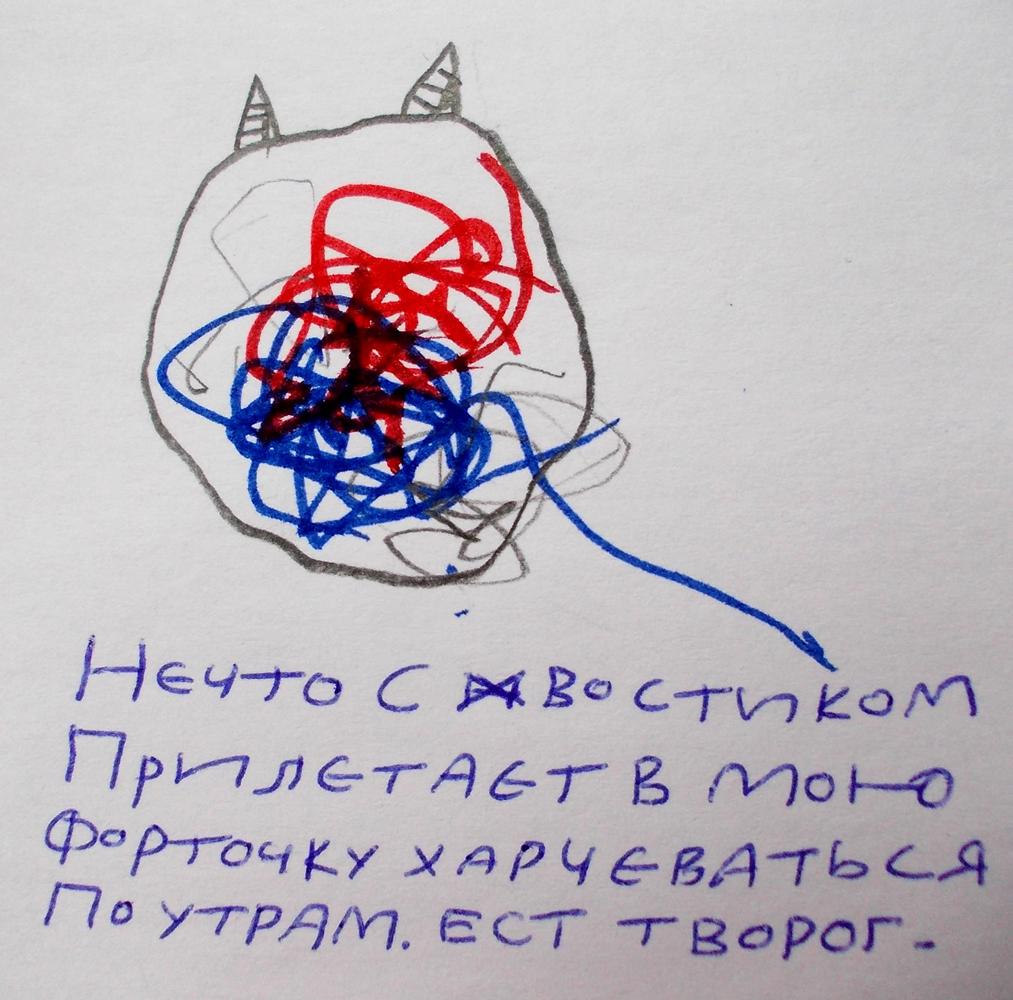 Нечто с хвостиком
Прилетает в мою
форточку харчеваться
по утрам. Ест творог.